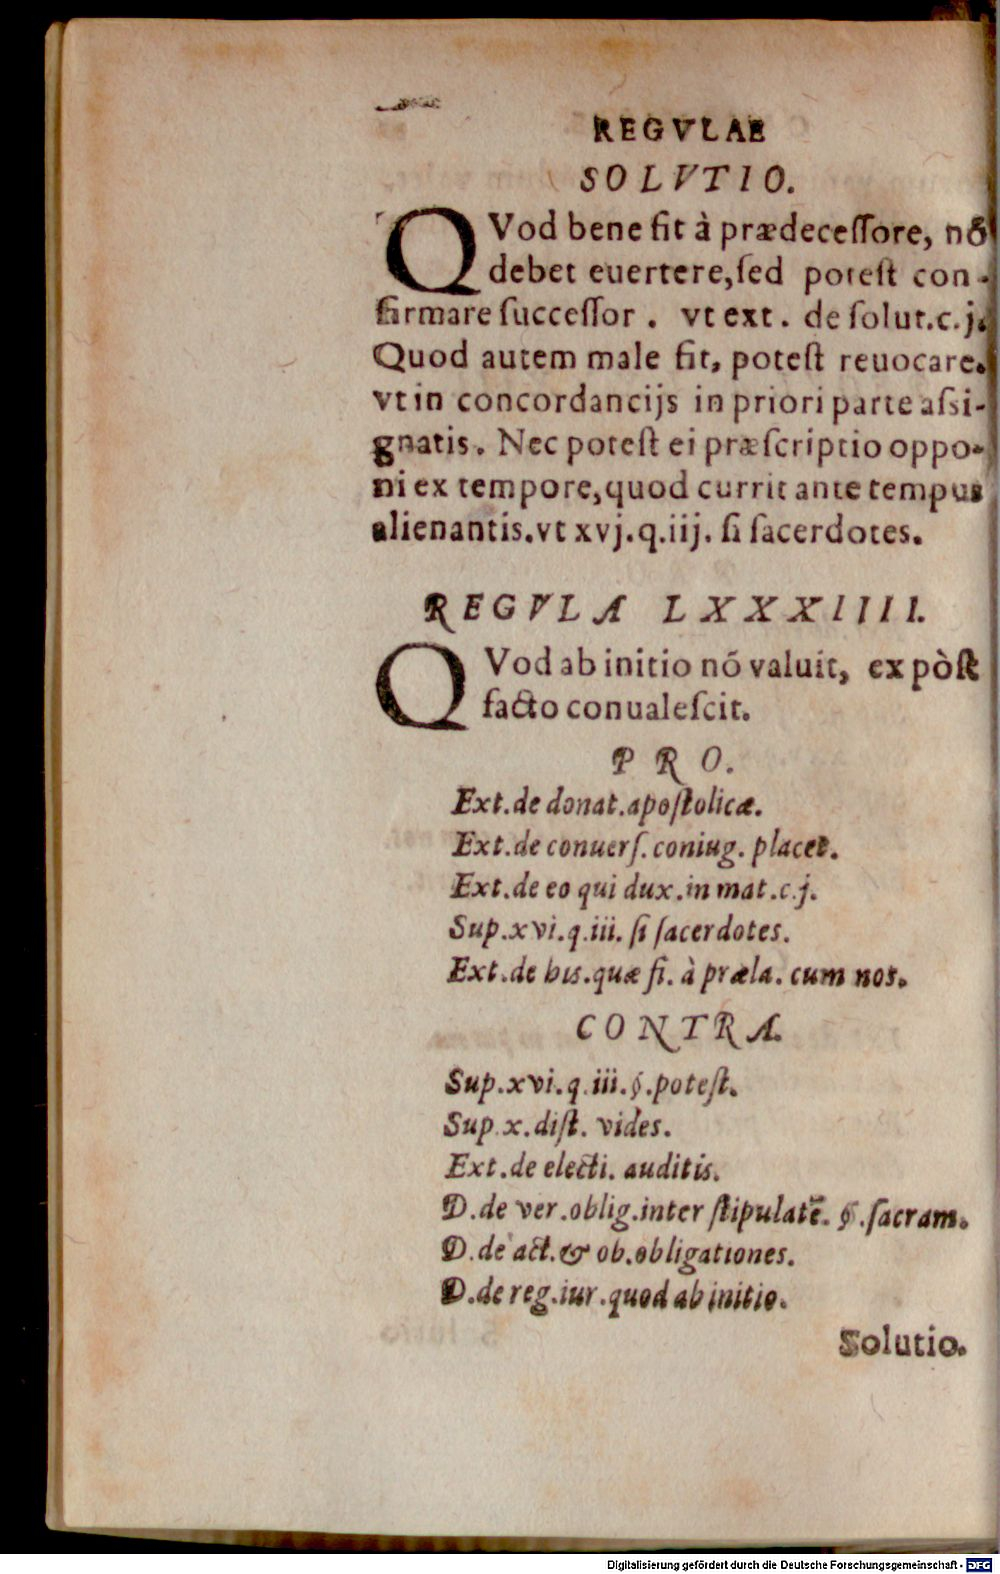 REGVLAE
SOLVTIO.
QVod bene fit à prædecessore, nõ
debet euertere, sed potest con-
firmare successor. vt ext. de solut.c.j.
Quod autem male fit, potest reuocare.
vt in concordancijs in priori parte assi-
gnatis. Nec potest ei præscriptio oppo-
ni ex tempore, quod currit ante tempus
alienantis. vt xvj.q.iij. si sacerdotes.
REGVLA LXXXIIII.
QVod ab initio nõ valuit, ex pòst
facto conualescit.
PRO.
Ext.de donat.apostolicæ.
Ext.de conuers. coniug. placet.
Ext.de eo qui dux.in mat.c.j.
Sup.xvi.q.iii. si sacerdotes.
Ext.de his.quæ fi. à præla. cum nos.
CONTRA.
Sup.xvi.q.iii.§.potest.
Sup.x.dist. vides.
Ext.de electi. auditis.
D.de ver.oblig.inter stipulatē. §.sacram.
D.de act.& ob.obligationes.
D.de reg.iur.quod ab initio.
Solutio.
Digitalisierung gefördert durch die Deutsche Forschungsgemeinschaft - DFG